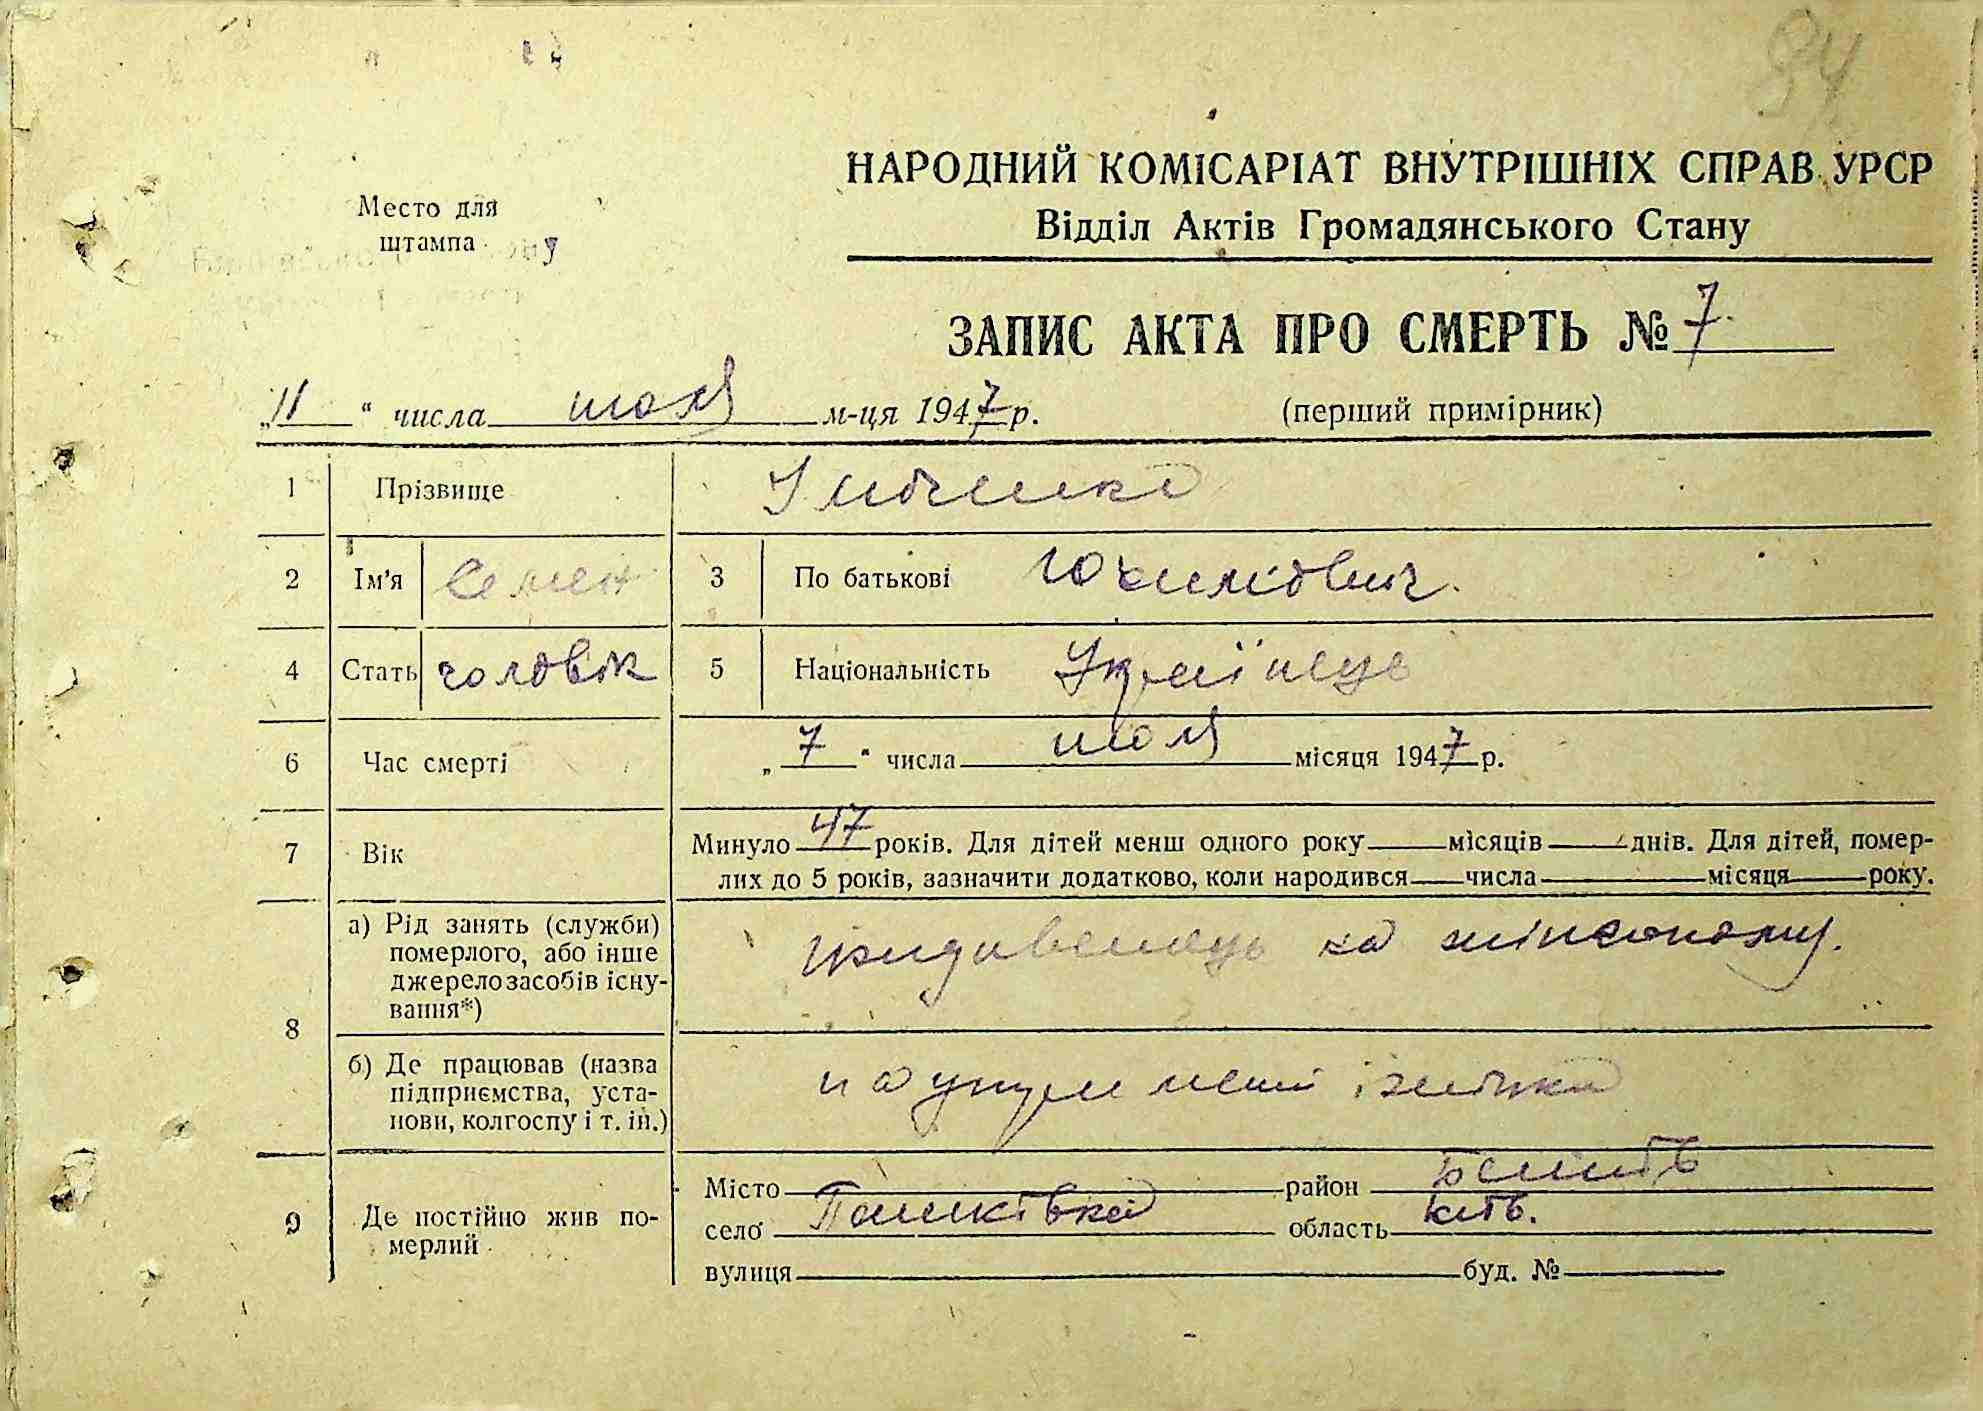 94
НАРОДНИЙ КОМІСАРІАТ ВНУТРІШНІХ СПРАВ УРСР
Место для
штампа
Відділ Актів Громадянського Стану
ЗАПИС АКТА ПРО СМЕРТЬ № 7
„11“ числа июля м-ця 1947 р.
(перший примірник)
1 Прізвище
2 Ім'я Семен 3 По батькові Юхимович.
4 Стать чоловік 5 Національність Українець
6 Час смерті „7“ числа июля місяця 1947 р.
7 Вік Минуло 47 років. Для дітей менш одного року місяців днів. Для дітей, помер-
лих до 5 років, зазначити додатково, коли народився числа місяця року.
8 а) Рід занять (служби)
померлого, або інше
джерело засобів існу-
вання*)
на
б) Де працював (назва
підприємства, уста-
нови, колгоспу і т. ін.)
9 Де постійно жив по-
мерлий
Місто район
село Пашківка область
вулиця буд. №